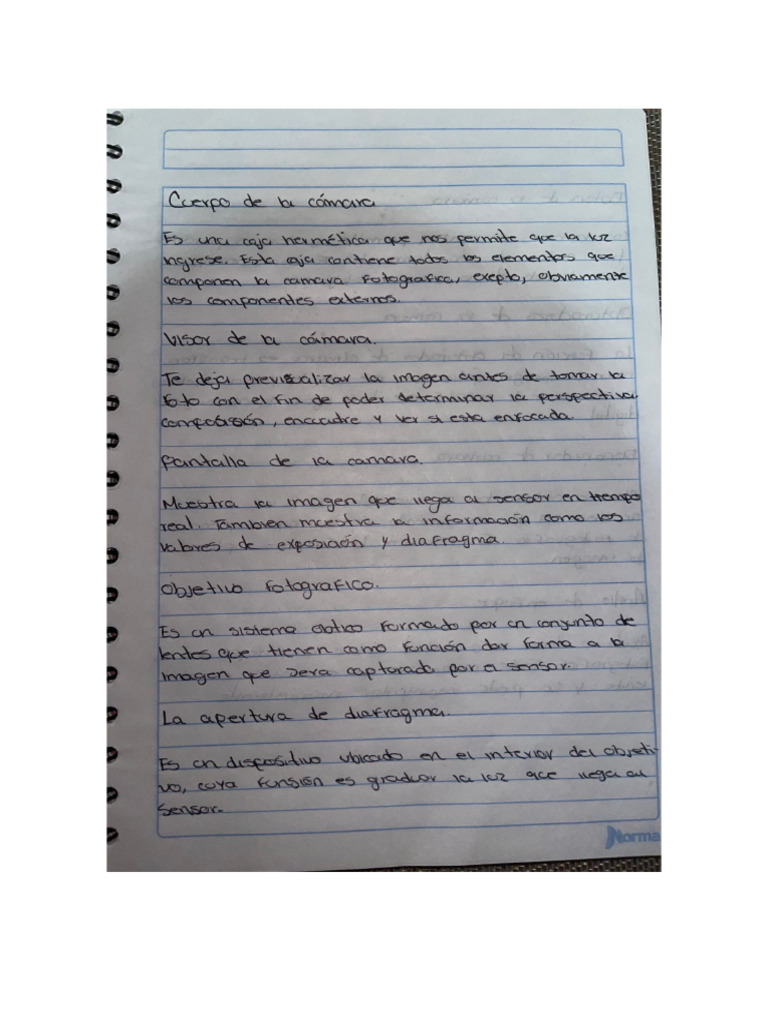 Cuerpo de la cámara
Es una caja hermética que nos permite que la luz
ingrese. Esta caja contiene todos los elementos que
componen la camara fotografica, exepto, obviamente
los componentes externos.
Visor de la cámara.
Te deja previzualizar la imagen antes de tomar la
foto con el fin de poder determinar la perspectiva
composición, encuadre y ver si esta enfocada.
Pantalla de la camara.
Muestra la imagen que llega al sensor en tiempo
real. Tambien muestra la información como los
valores de exposición y diafragma.
Objetivo fotografico.
Es un sistema obtico formado por un conjunto de
lentes que tienen como función dar forma a la
imagen que sera capturada por el sensor.
La apertura de diafragma.
Es un dispositivo ubicado en el interior del objeti-
vo, cuya funsión es graduar la luz que llega al
sensor.
Norma